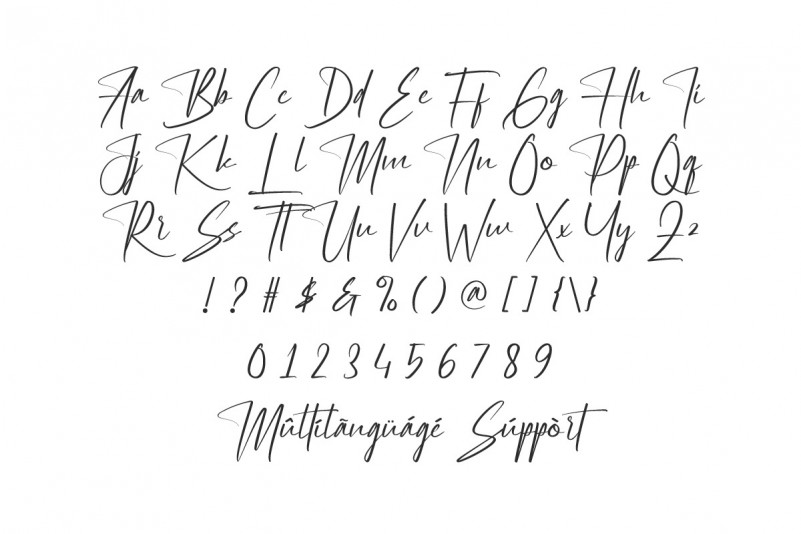 Aa Bb Cc Dd Ee Ff Gg Hh Ii
Jj Kk Ll Mm Nn Oo Pp Qq
Rr Ss Tt Uu Vv Ww Xx Yy Zz
! ? # $ & % ( ) @ [ ] { \ }
0 1 2 3 4 5 6 7 8 9
Mûltílãngüágé Súppòrt